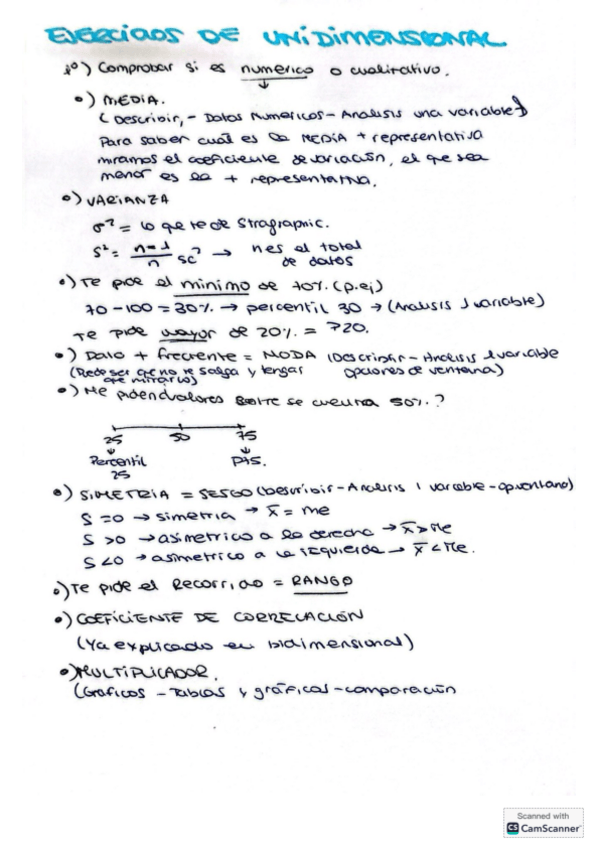 EJERCICIOS DE UNIDIMENSIONAL
1º) Comprobar si es numerico o cualitativo.
•) MEDIA.
(Describir, - Datos Numericos - Analisis una variable)
Para saber cual es la MEDIA + representativa
miramos el coeficiente de variación, el que sea
menor es la + representativa.
•) VARIANZA
σ² = lo que te de Stragraphic.
S² = n-1/n sc² → n es el total
de datos
•) Te pide el minimo de 70%. (p.ej)
70 - 100 = 30%. → percentil 30 → (Analisis 1 variable)
Te pide mayor de 20%. = P20.
•) Dato + frecuente = MODA (Describir - Analisis 1 variable
(Puede ser que no te salga y tengas opciones de ventana)
que mirarlo)
•) Me piden valores entre se cuentra 50%.?
25 50 75
Percentil P75.
25
•) SIMETRIA = SESGO (Describir - Analisis 1 variable - op ventana)
S = 0 → simetria → x̄ = me
S > 0 → asimetrico a la derecha → x̄ > Me
S < 0 → asimetrico a la izquierda → x̄ < Me.
•) Te pide el Recorrido = RANGO
•) COEFICIENTE DE CORRELACIÓN
(Ya explicado en bidimensional)
•) MULTIPLICADOR.
(Graficos - Tablas y gráficos - comparación
Scanned with
CS CamScanner